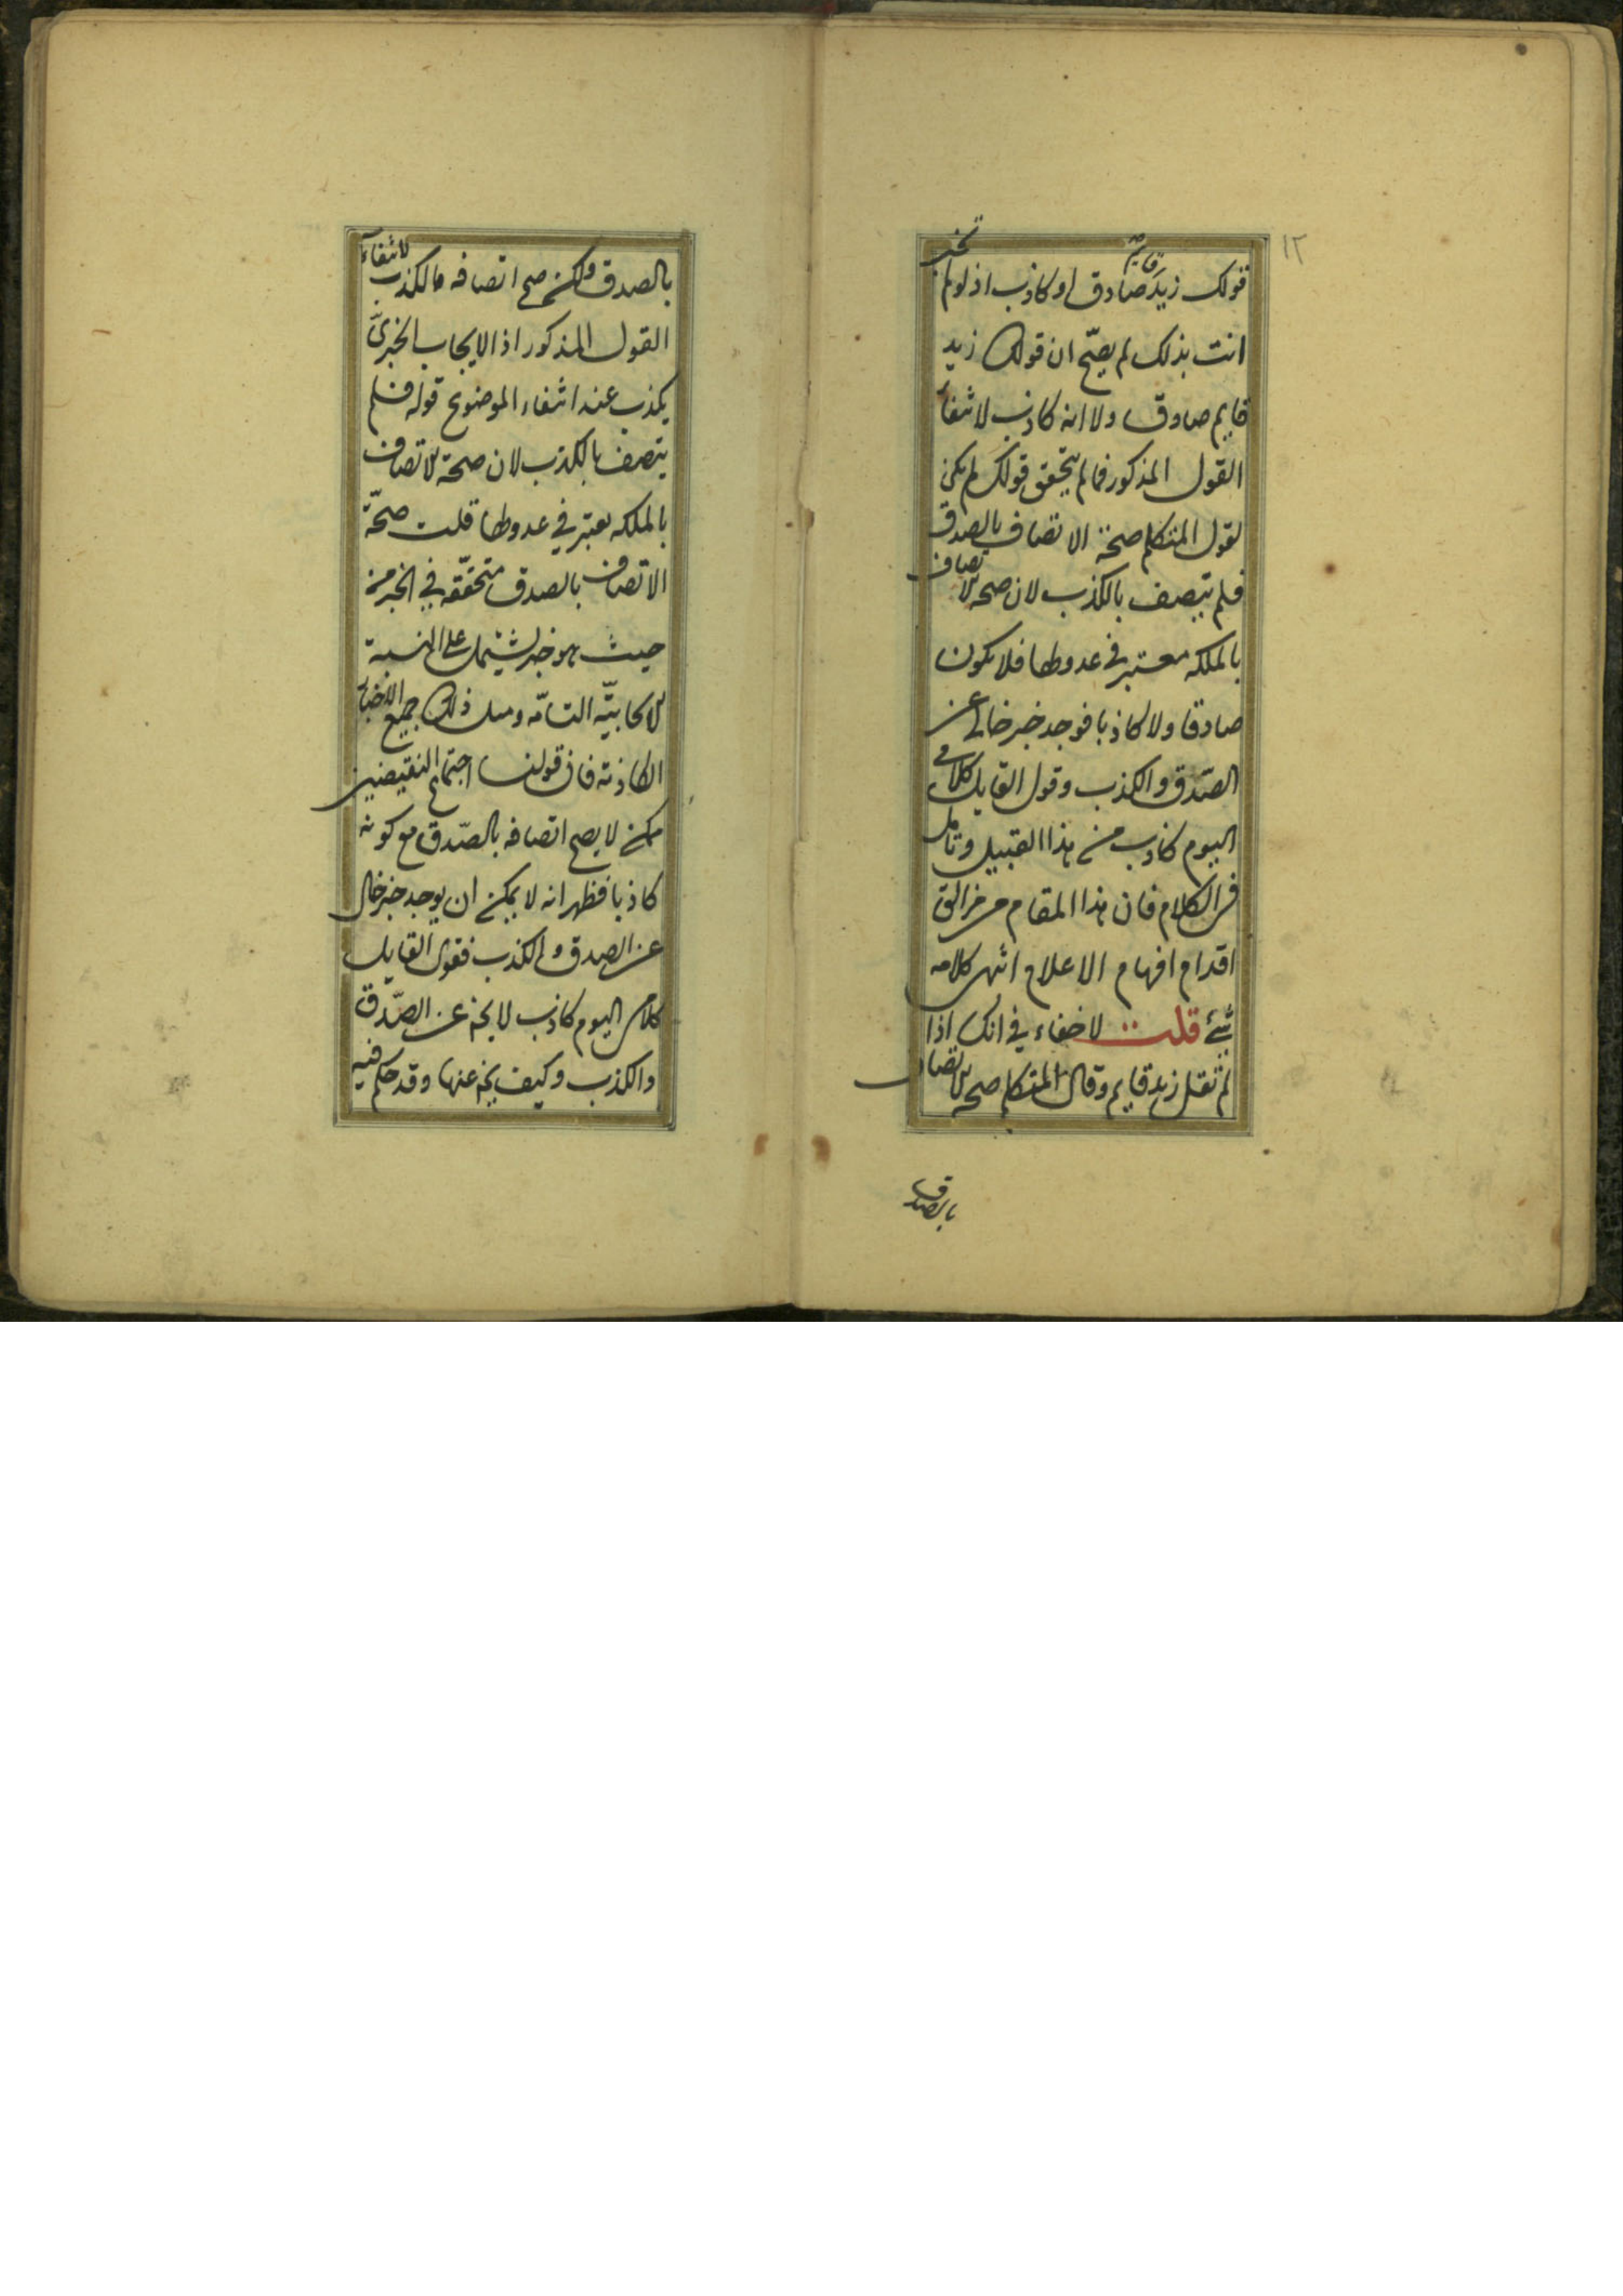 ١٢
قولك زيد قايم صادق او كاذب اذ لو لم تخبر
انت بذلك لم يصحّ ان قولك زيد
قايم صادق ولا انه كاذب لانتفاء
القول المذكور فما لم يتحقق قولك لم يكن
لقول المتكلم صحة الاتصاف بالصدق
فلم يتصف بالكذب لان صحة الاتصاف
بالملكه معتبر في عدوطها فلا يكون
صادقا ولا كاذبا فوجد خبر خالي عن
الصّدق والكذب وقول القايل كلامي
اليوم كاذب من هذا القبيل وتامل
في الكلام فان هذا المقام من مزالق
اقدام افهام الاعلام انتهى كلامه
شئ قلت لا خفاء في انك اذا
لم تقل زيد قايم وقال المتكلم صحة الاتصاف
بالصدق
بالصدق ولكن صح اتصافه بالكذب لانتفاء
القول المذكور اذ الايجاب الخبريّ
يكذب عند انتفاء الموضوع قوله فلم
يتصف بالكذب لان صحة الاتصاف
بالملكه يعتبر في عدوطها قلت صحّة
الاتصاف بالصدق متحقّقه في الخبر من
حيث هو خبر يشتمل على النسبة
الايجابيّه التامّه ومثل ذلك جميع الاخبار
الكاذبة فان قولنا اجتماع النقيضين
ممكن لا يصح اتصافه بالصّدق مع كونه
كاذبا فظهر انه لا يمكن ان يوجد خبر خال
عن الصدق والكذب فقول القايل
كلامي اليوم كاذب لا يخ عن الصّدق
والكذب وكيف يخ عنها وقد حكم فيه